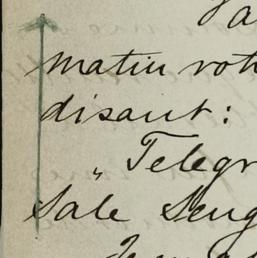 matin vot
disant :
„ Telegr
Sale Seng